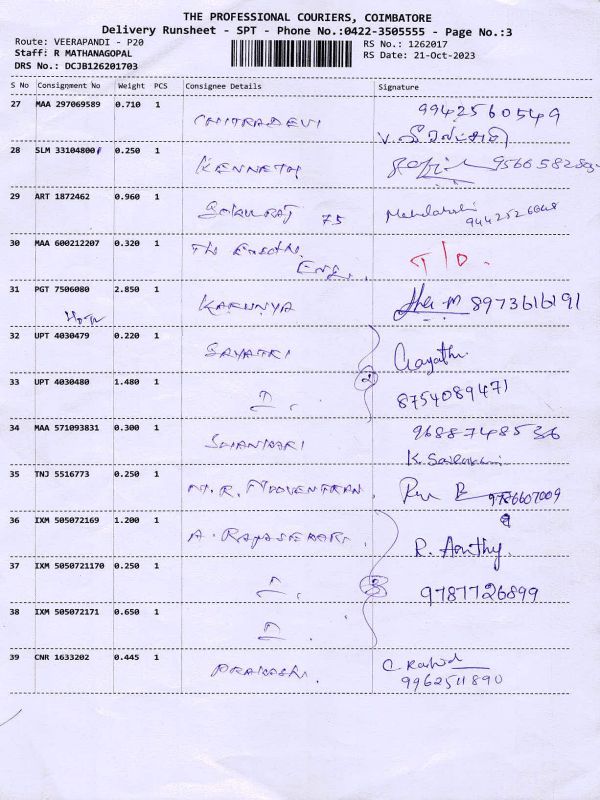 THE PROFESSIONAL COURIERS, COIMBATORE
Delivery Runsheet - SPT - Phone No.:0422-3505555 - Page No.:3
Route: VEERAPANDI - P20
Staff: R MATHANAGOPAL
DRS No.: DCJB126201703
RS No.: 1262017
RS Date: 21-Oct-2023
S No Consignment No Weight PCS Consignee Details Signature
27 MAA 297069589 0.710 1 CHITRADEVI 9942560549
28 SLM 33104800 0.250 1 KENNETH
29 ART 1872462 0.960 1 GOKULRAJ 75
30 MAA 600212207 0.320 1 Eng. T/D.
31 PGT 7506080 2.850 1 KARUNYA 8973616191
32 UPT 4030479 0.220 1 GAYATRI Gayathri
33 UPT 4030480 1.480 1 2 8754089471
34 MAA 571093831 0.300 1 SHANKARI 9688748536
35 TNJ 5516773 0.250 1 M.R. MOOVENTHRAN. 9786607009
36 IXM 505072169 1.200 1 A. RAJASEKARI. R. Aanthy.
37 IXM 5050721170 0.250 1 3 9787726899
38 IXM 505072171 0.650 1
39 CNR 1633202 0.445 1 PRAKASH. C. Rashid
9962511890